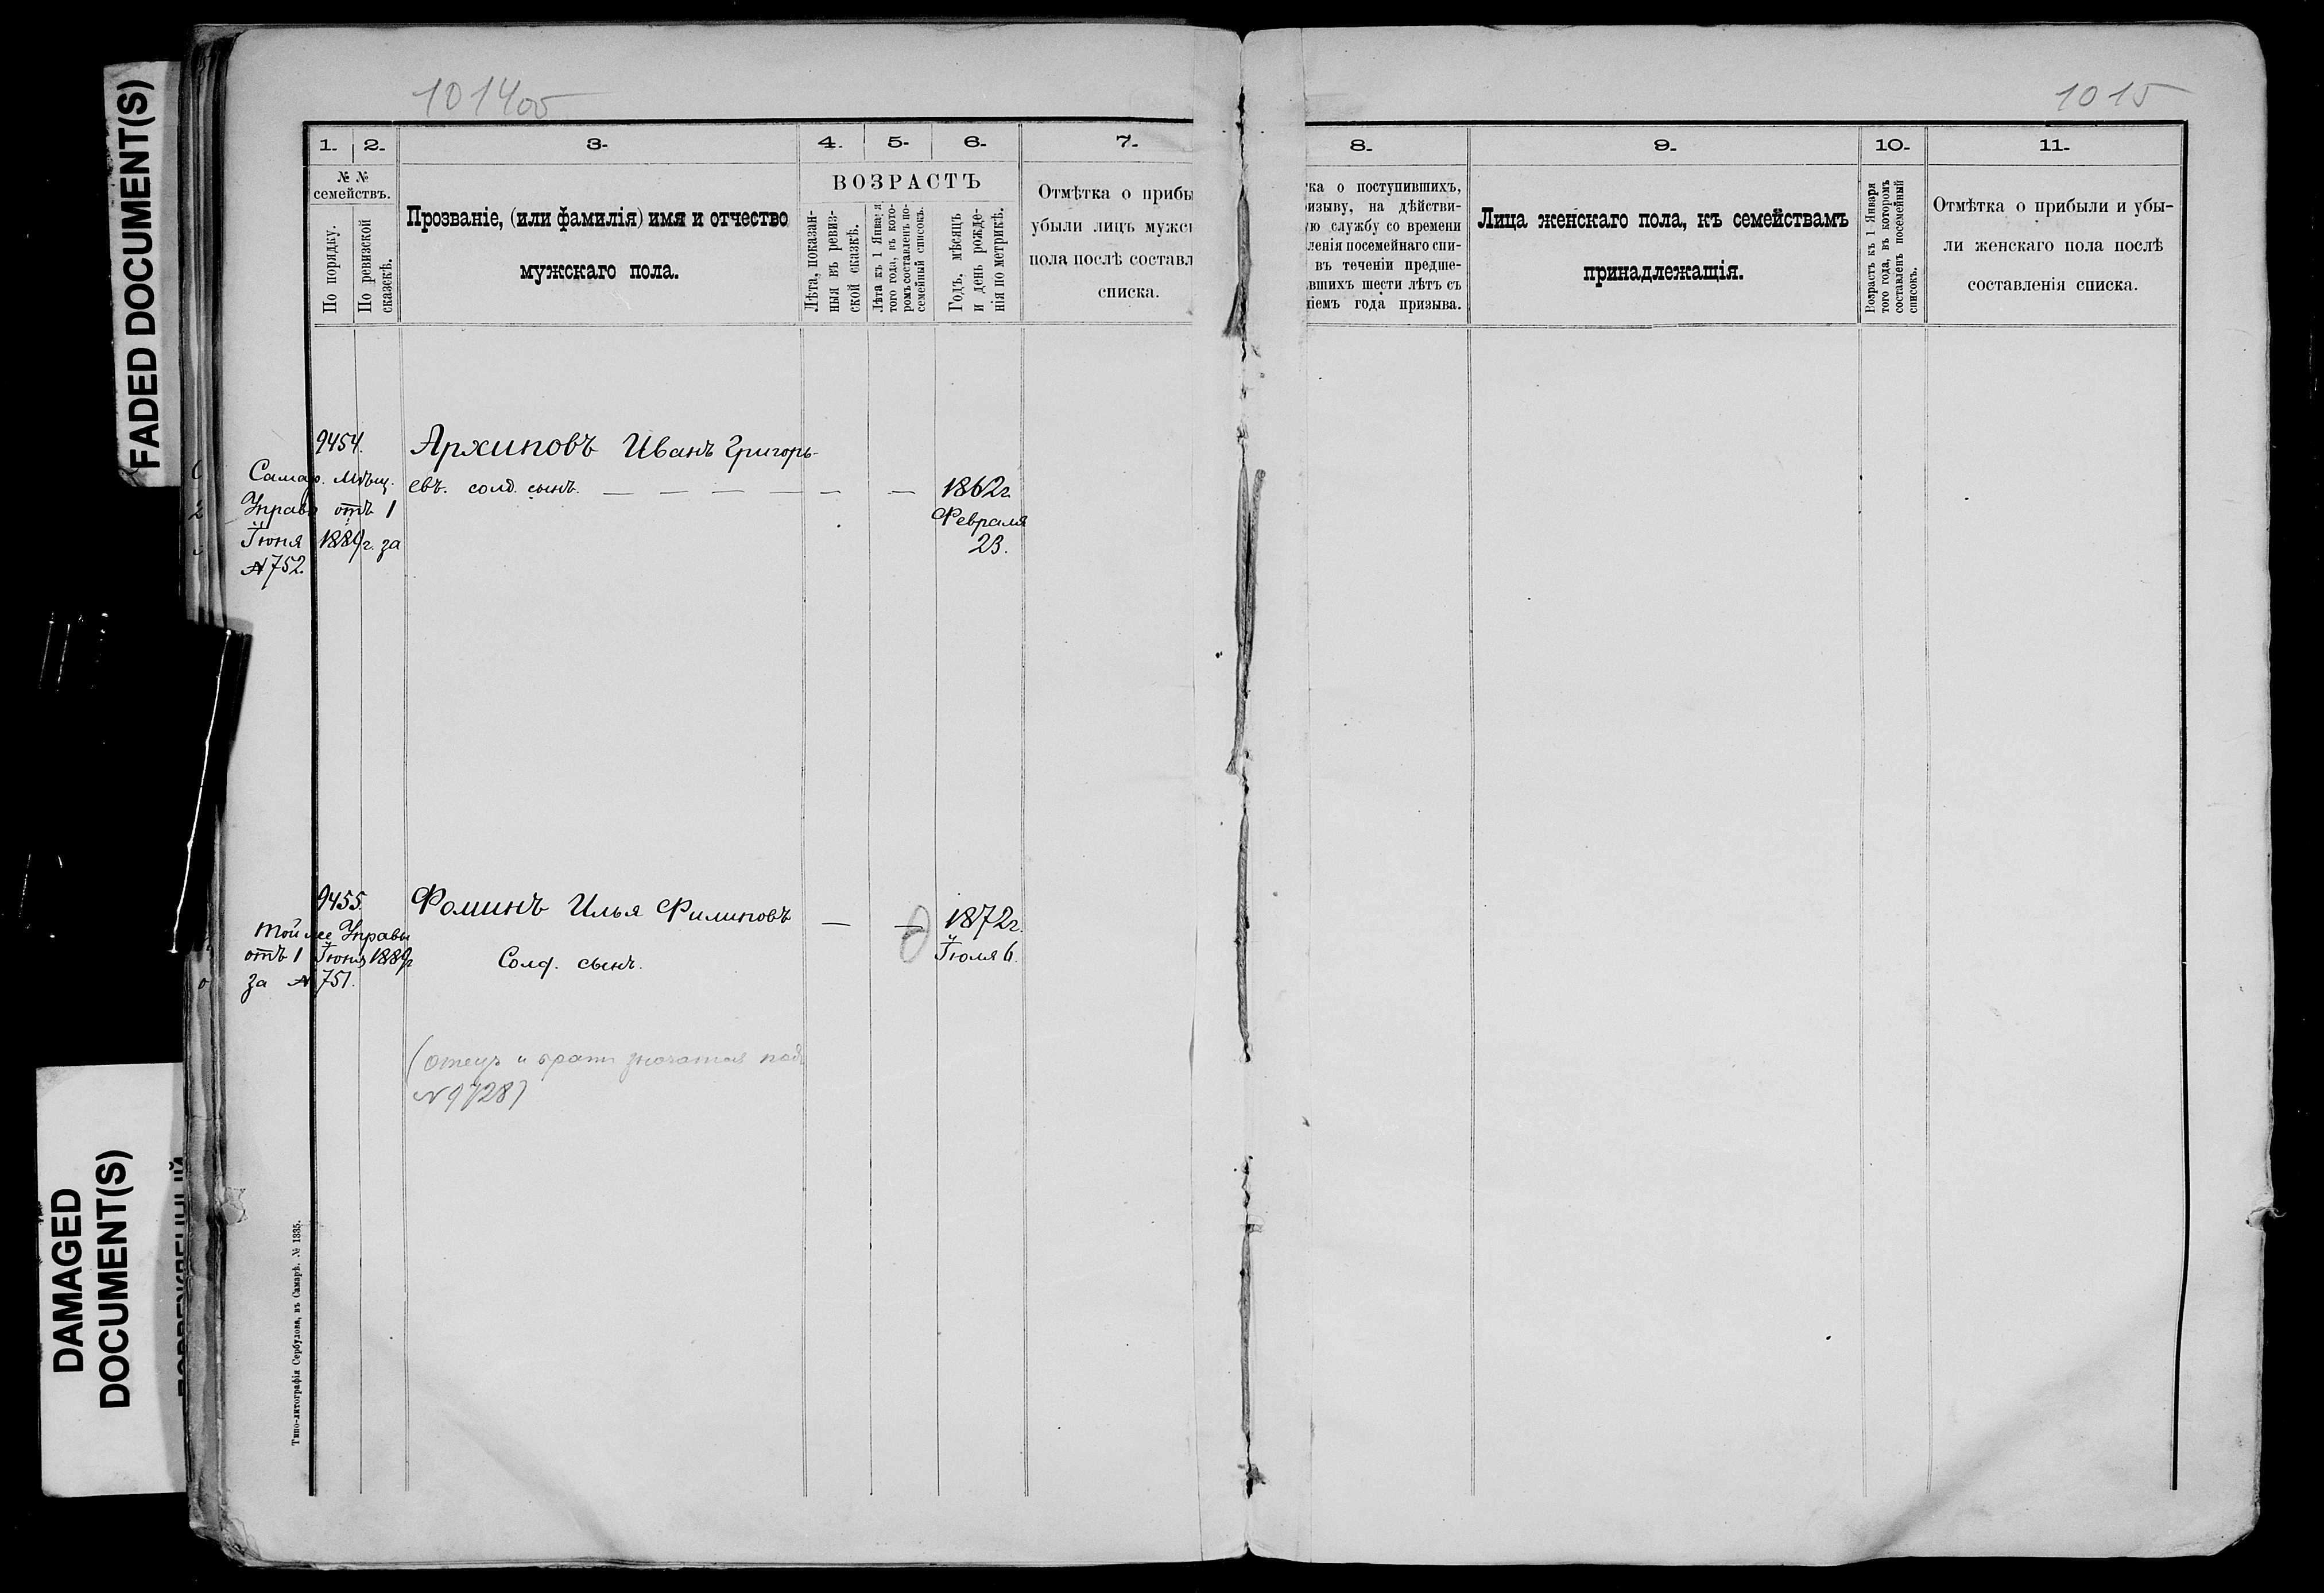 FADED DOCUMENT(S)
DAMAGED
DOCUMENT(S)
1014об
1015
1. 2. 3. 4. 5. 6. 7. 8. 9. 10. 11.
№ №
семействъ.
По порядку.
По ревизской
сказскѣ.
Прозваніе, (или фамилія) имя и отчество
мужскаго пола.
ВОЗРАСТЪ
Лѣта, показан-
ныя въ ревиз-
ской сказкѣ.
Лѣта къ 1 Января
того года, въ кото-
ромъ составленъ по-
семейный списокъ.
Годъ, мѣсяцъ
и день рожде-
нія по метрикѣ.
Отмѣтка о прибы
убыли лицъ мужс
пола послѣ составл
списка.
ка о поступившихъ,
изыву, на дѣйстви-
ую службу со времени
ленія посемейнаго спи-
въ теченіи предше-
вшихъ шести лѣтъ съ
ніемъ года призыва.
Лица женскаго пола, къ семействамъ
принадлежащія.
Возрастъ къ 1 Января
того года, въ которомъ
составленъ посемейный
списокъ.
Отмѣтка о прибыли и убы-
ли женскаго пола послѣ
составленія списка.
9454.
Самар. Мѣщ.
Управы отъ 1
Іюня 1889г. за
№752.
Архиповъ Иванъ Григорь-
евъ. солд. сынъ. — — — — — —
1862г.
Февраля
23.
9455.
Той же Управы
отъ 1 Іюня 1889г
за №751.
Фоминъ Илья Филиповъ — —
Солд. сынъ.
1872г.
Іюля 6.
(отецъ и братъ значатся подъ
№9728)
Типо-литографія Сербулова, въ Самарѣ. № 1335.